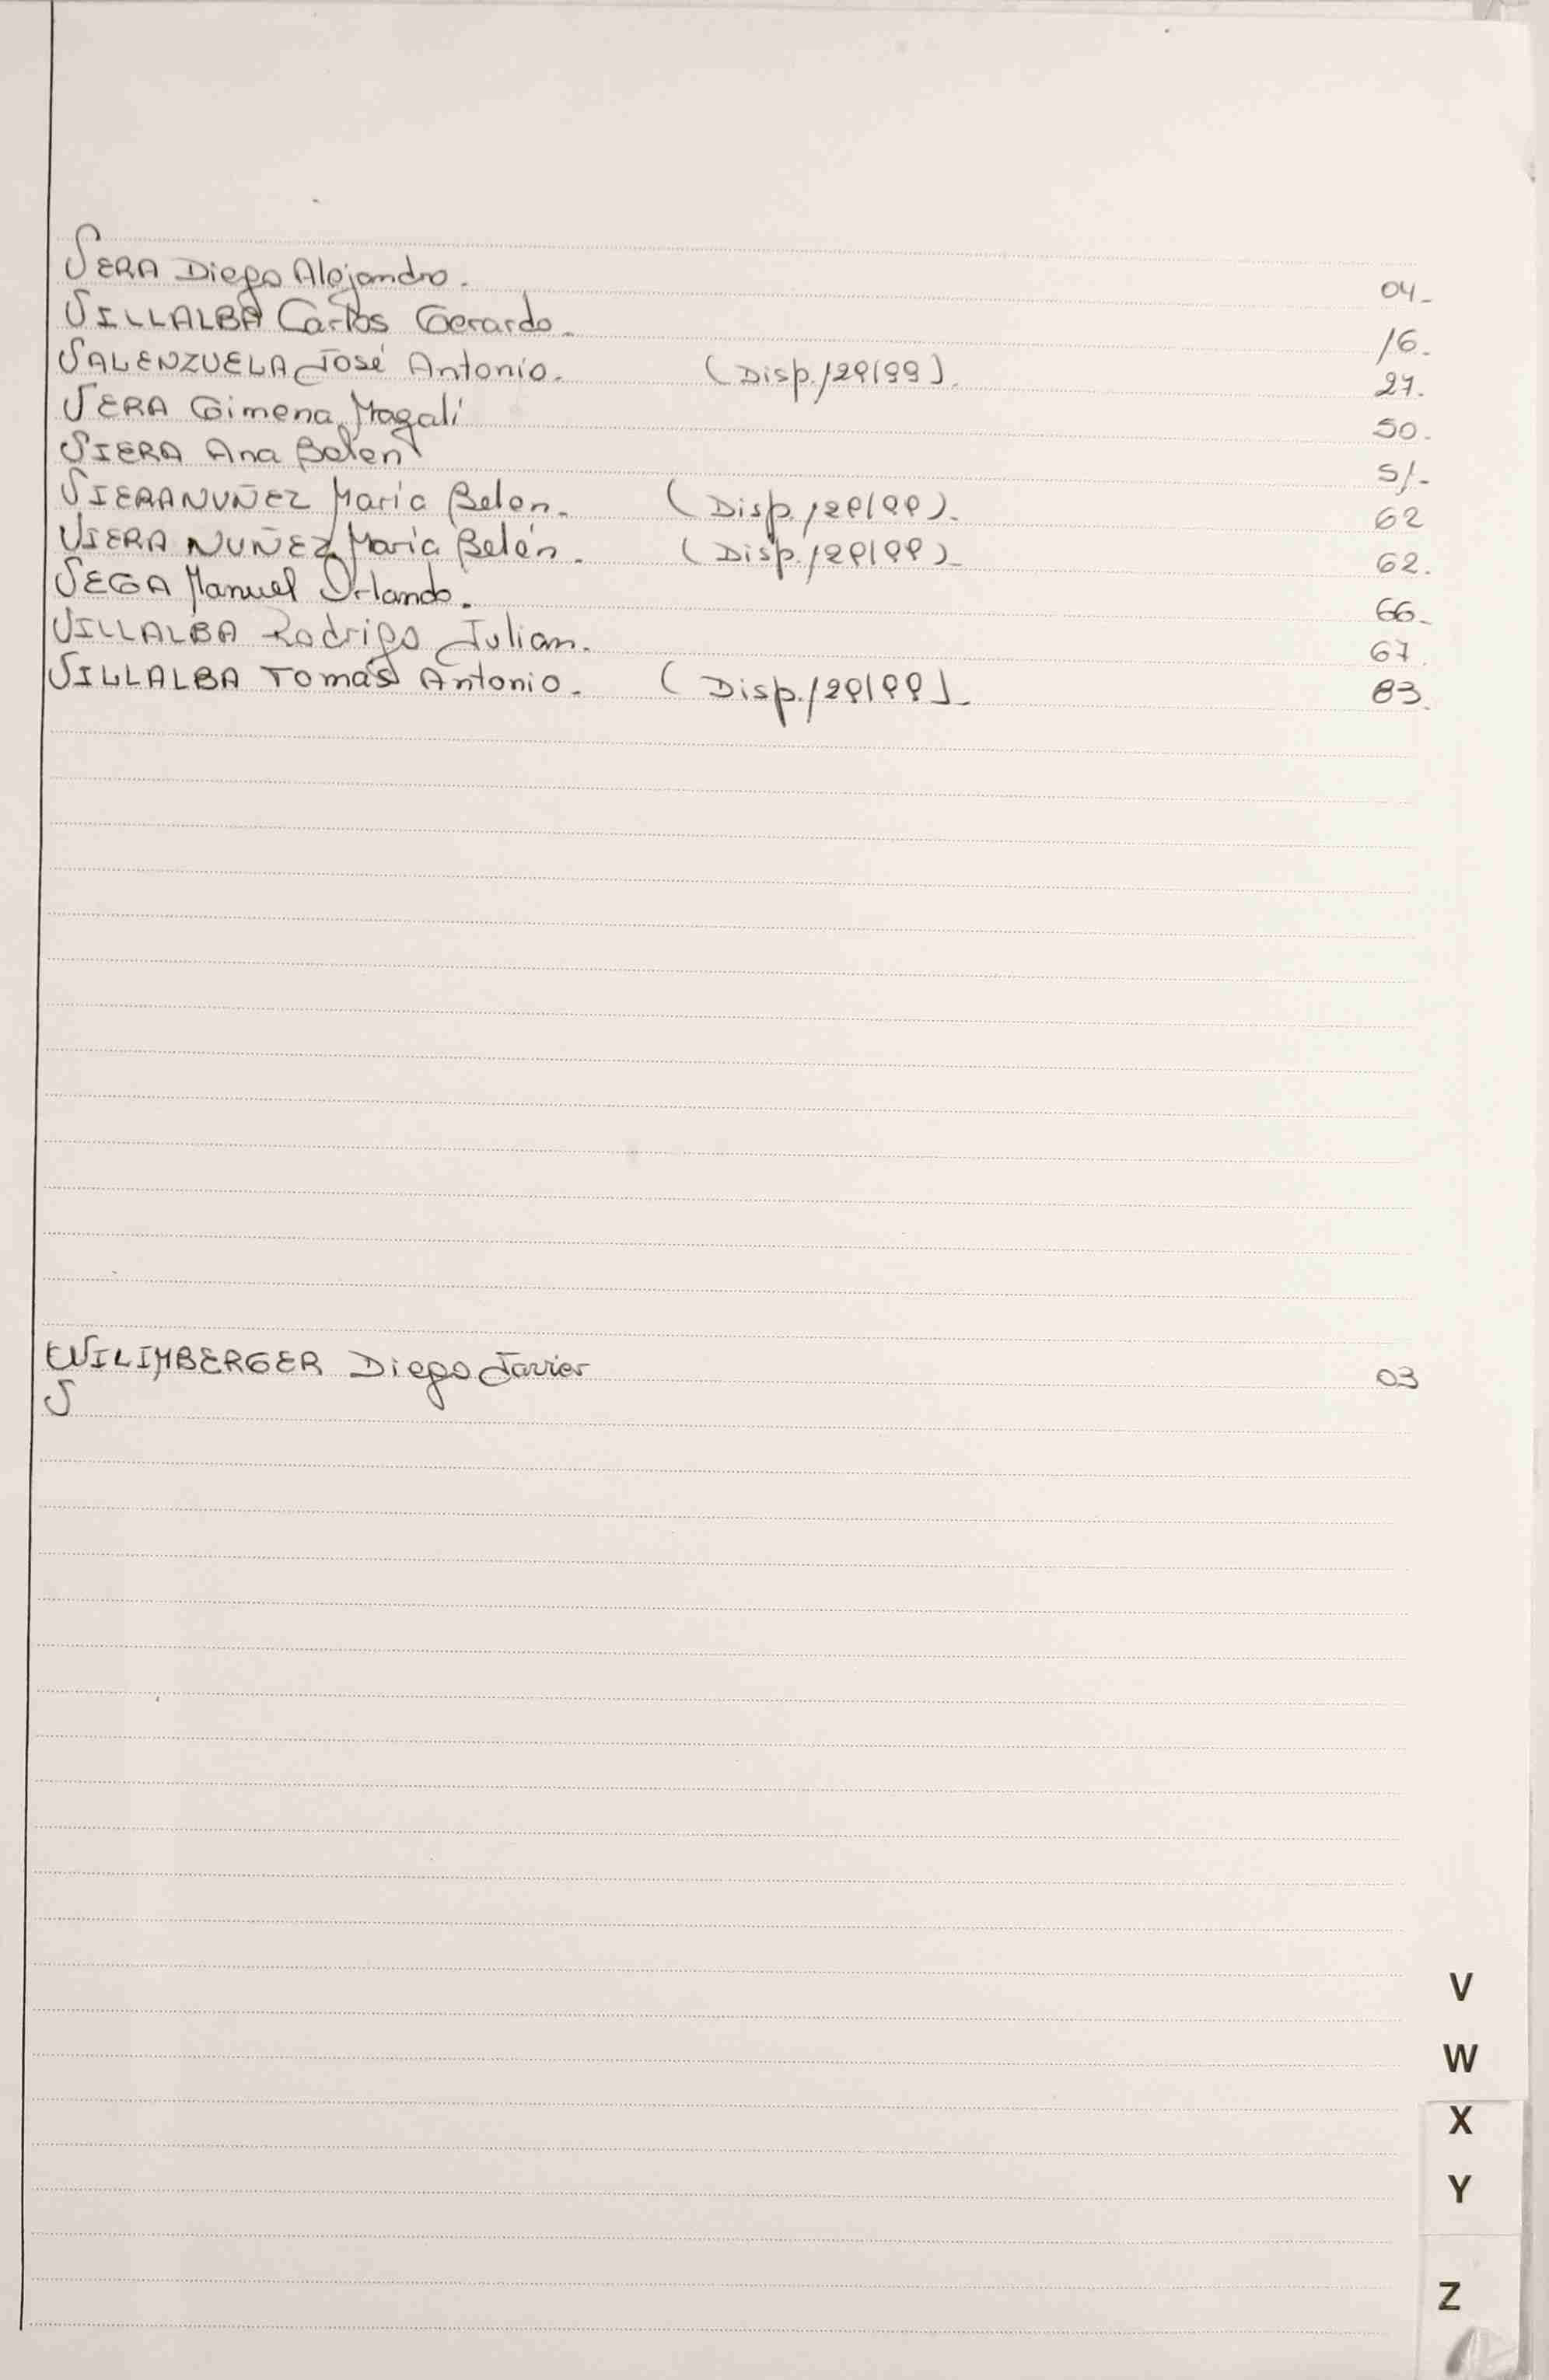 VERA Diego Alejandro. 04-
VILLALBA Carlos Gerardo. 16.
VALENZUELA José Antonio. (Disp. 129/99). 27.
VERA Gimena Magalí 50.
VIERA Ana Belen 51-
VIERA NUÑEZ María Belen. (Disp. 129/99). 62
VIERA NUÑEZ María Belén. (Disp. 129/99) 62.
VEGA Manuel Orlando. 66-
VILLALBA Rodrigo Julian. 67.
VILLALBA Tomás Antonio. (Disp. 129/99). 83.
WILIMBERGER Diego Javier 03
V
V
W
X
Y
Z